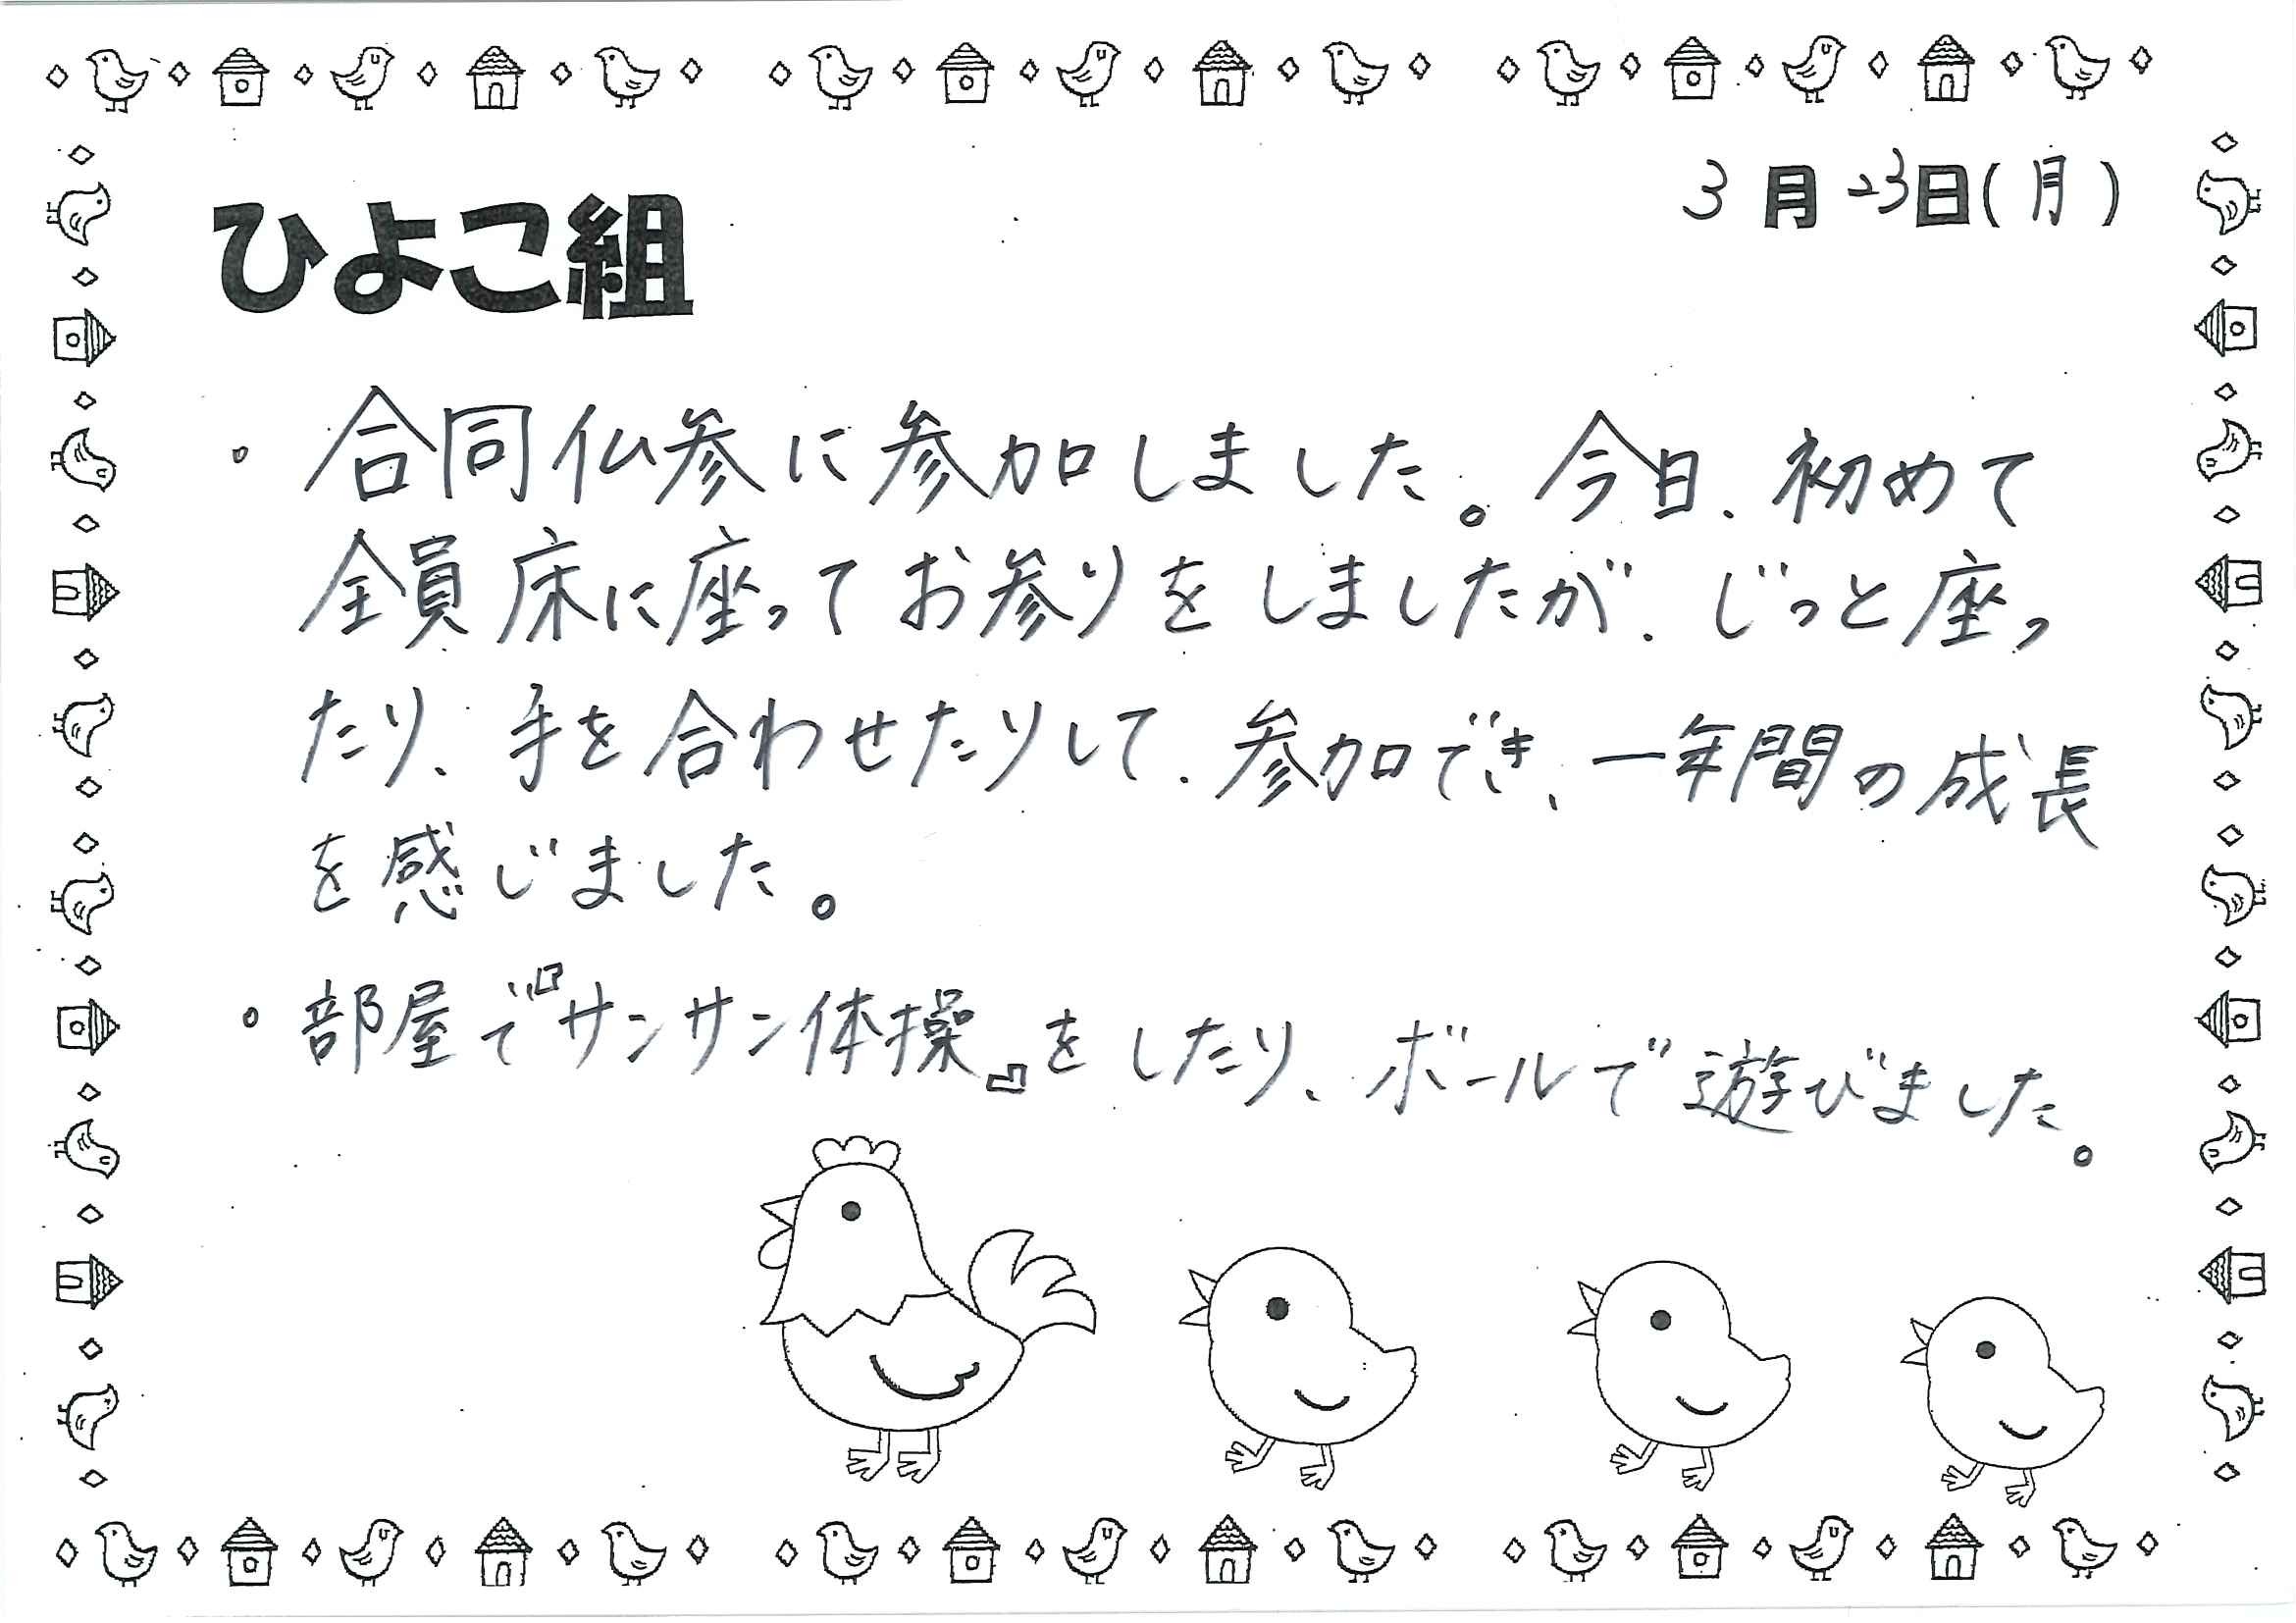 3月23日(月)
ひよこ組
・合同仏参に参加しました。今日、初めて
全員床に座ってお参りをしましたが、じっと座っ
たり、手を合わせたりして、参加でき、一年間の成長
を感じました。
・部屋で『サンサン体操』をしたり、ボールで遊びました。